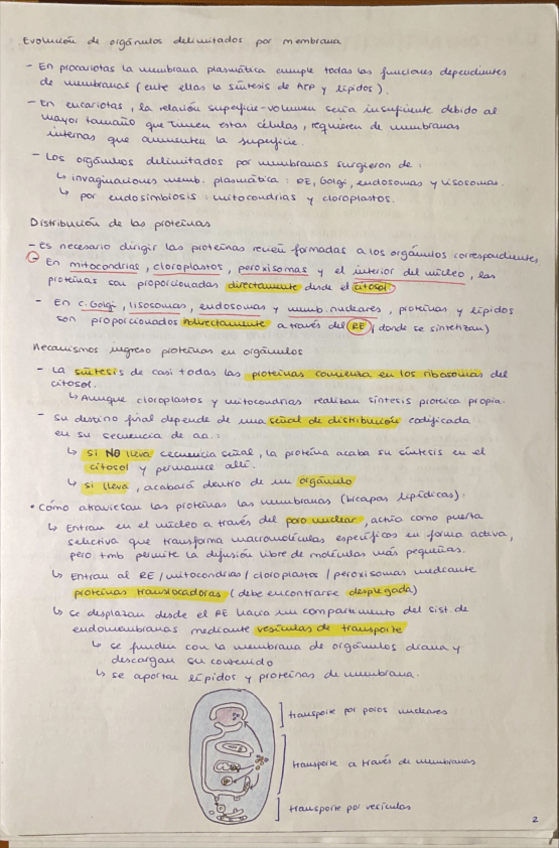 Evolución de orgánulos delimitados por membrana
- En procariotas la membrana plasmática cumple todas las funciones dependientes
de membranas (entre ellas la síntesis de ATP y lípidos).
- En eucariotas, la relación superficie-volumen sería insuficiente debido al
mayor tamaño que tienen estas células, requieren de membranas
internas que aumenten la superficie.
- Los orgánulos delimitados por membranas surgieron de:
↳ invaginaciones memb. plasmática: RE, Golgi, endosomas y lisosomas.
↳ por endosimbiosis: mitocondrias y cloroplastos.
Distribución de las proteínas
- es necesario dirigir las proteínas recién formadas a los orgánulos correspondientes
- En mitocondrias, cloroplastos, peroxisomas y el interior del núcleo, las
proteínas son proporcionadas directamente desde el citosol.
- En c. Golgi, lisosomas, endosomas y memb. nucleares, proteínas y lípidos
son proporcionados indirectamente a través del RE (donde se sintetizan)
Mecanismos ingreso proteínas en orgánulos
- La síntesis de casi todas las proteínas comienza en los ribosomas del
citosol.
↳ Aunque cloroplastos y mitocondrias realizan síntesis proteica propia.
- Su destino final depende de una señal de distribución codificada
en su secuencia de aa:
↳ si NO lleva secuencia señal, la proteína acaba su síntesis en el
citosol y permanece allí.
↳ si lleva, acabará dentro de un orgánulo
• Cómo atraviesan las proteínas las membranas (bicapas lipídicas):
↳ Entran en el núcleo a través del poro nuclear, actúa como puerta
selectiva que transforma macromoléculas específicas en forma activa,
pero tmb permite la difusión libre de moléculas más pequeñas.
↳ Entran al RE/mitocondrias/cloroplastos/peroxisomas mediante
proteínas translocadoras (debe encontrarse desplegada)
↳ se desplazan desde el RE hacia un compartimento del sist. de
endomembranas mediante vesículas de transporte
↳ se funden con la membrana de orgánulos diana y
descargan su contenido
↳ se aportan lípidos y proteínas de membrana.
transporte por poros nucleares
transporte a través de membranas
transporte por vesículas
2